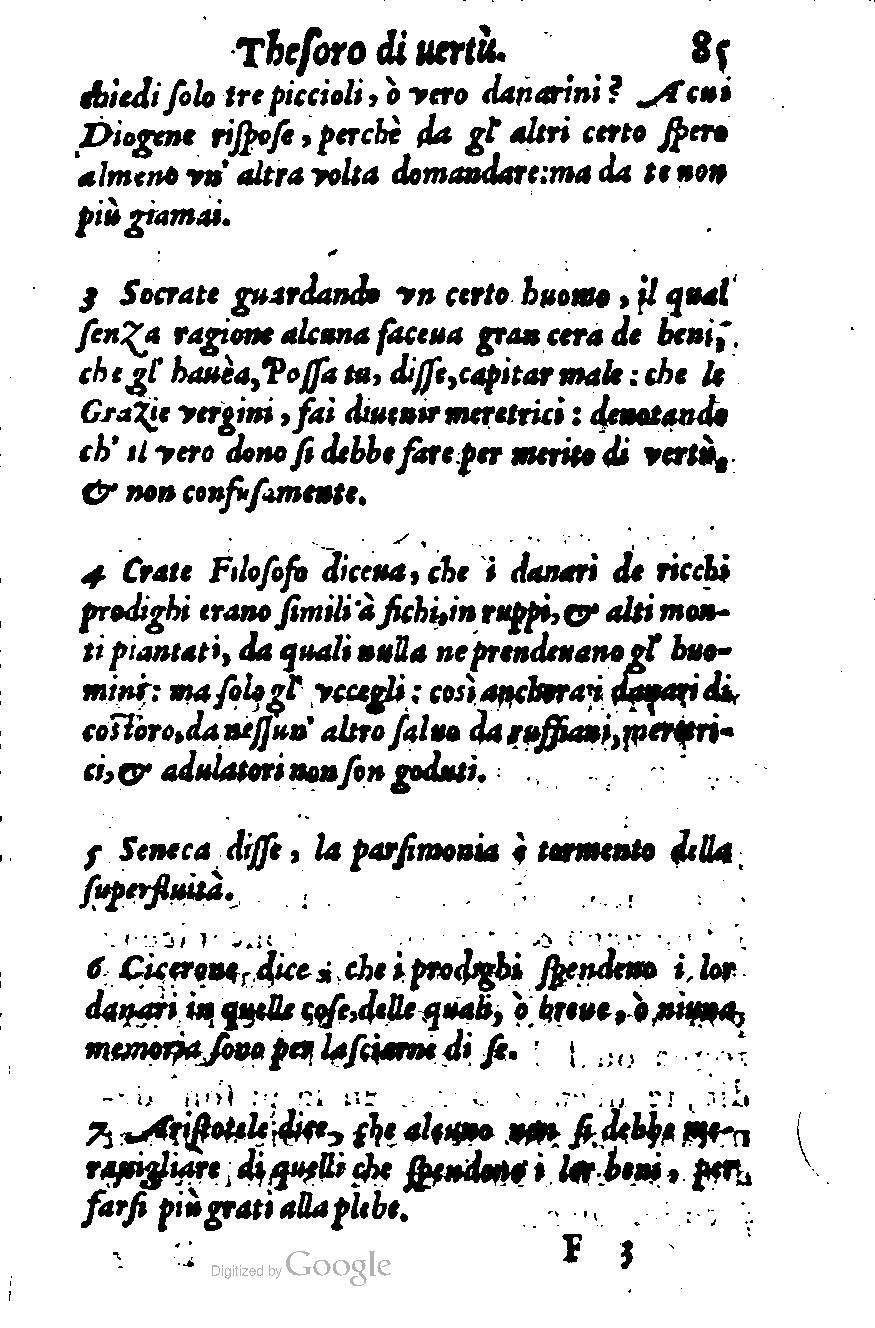 Theſoro di uertù. 85
chiedi ſolo tre piccioli, ò vero danarini? A cui
Diogene riſpoſe, perchè da gl' altri certo ſpero
almeno vn' altra volta domandare: ma da te non
più giamai.
3 Socrate guardando vn certo huomo, il qual
ſenza ragione alcuna faceua gran cera de beni,
che gl' hauèa, Poſſa tu, diſſe, capitar male: che le
Grazie vergini, fai diuenir meretrici: denotando
ch' il vero dono ſi debbe fare per merito di vertù,
& non confuſamente.
4 Crate Filoſofo diceua, che i danari de ricchi
prodighi erano ſimili à fichi, in ruppi, & alti mon-
ti piantati, da quali nulla ne prendeuano gl' huo-
mini: ma ſolo gl' vccegli: così anchora i danari di
coſtoro, da neſſun' altro ſaluo da ruffiani, meretri-
ci, & adulatori non ſon goduti.
5 Seneca diſſe, la parſimonia è tormento della
ſuperfluità.
6 Cicerone, dice, che i prodighi ſpendeno i lor
danari in quelle coſe, delle quali, ò breue, ò niuna,
memoria ſono per laſciarne di ſe.
7 Ariſtotele dice, che alcuno non ſi debbe me-
rauigliare di quelli che ſpendono i lor beni, per
farſi più grati alla plebe.
F 3
Digitized by Google